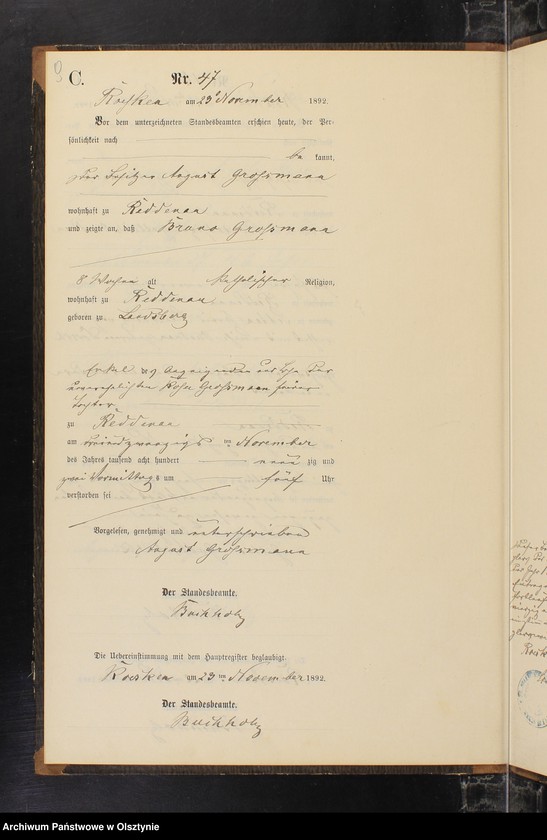 C.
Nr. 47
am 23 November 1892.
Vor dem unterzeichneten Standesbeamten erschien heute, der Per-
sönlichkeit nach
be kannt,
der Besitzer August Grossmann
wohnhaft zu Reddenau
und zeigte an, daß Bruno Grossmann
8 Wochen alt katholischer Religion,
wohnhaft zu Reddenau
geboren zu Landsberg
Enkel des Anzeigenden und Sohn der
unverehelichten Rosa Grossmann seiner
Tochter
zu Reddenau
am dreiundzwanzigsten November
des Jahres tausend acht hundert neun zig und
zwei Vormittags um fünf Uhr
verstorben sei
Vorgelesen, genehmigt und unterschrieben
August Grossmann
Der Standesbeamte.
Buchholz
Die Uebereinstimmung mit dem Hauptregister beglaubigt.
am 23 ten November 1892.
Der Standesbeamte.
Buchholz
Archiwum Państwowe w Olsztynie